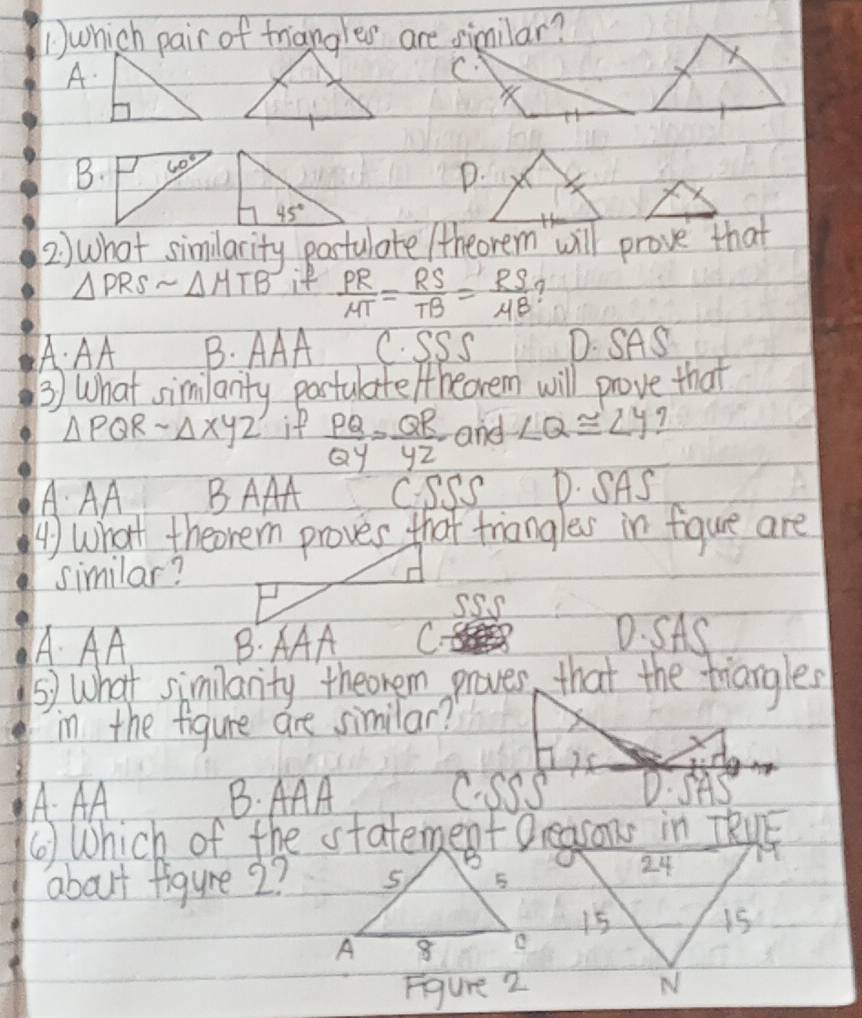 1.) which pair of triangles are similar?
A. C.
B. 60° 45° D.
2.) What similarity postulate/theorem will prove that
△PRS ~ △MTB if PR/MT = RS/TB = RS/MB?
A. AA B. AAA C. SSS D. SAS
3.) What similarity postulate/theorem will prove that
△PQR ~ △XYZ if PQ/QY = QR/YZ and ∠Q ≅ ∠Y?
A. AA B AAA C. SSS D. SAS
4.) What theorem proves that triangles in figure are
similar?
A. AA B. AAA C. SSS D. SAS
5.) What similarity theorem proves that the triangles
in the figure are similar?
A. AA B. AAA C. SSS D. SAS
6.) Which of the statement reasons in TRUE
about figure 2?
B 24 M
5 5 15 15
A 8 C
Figure 2 N